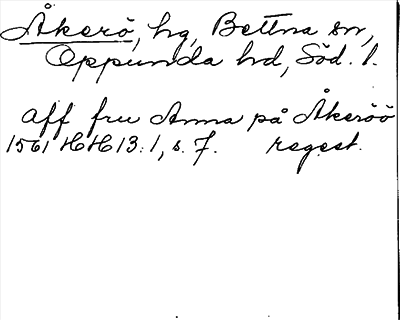 Åkerö, hg, Bettna sn,
Oppunda hd, Söd. l.
aff fru Anna på Åkeröö
1561 HH 13:1, s. 7. regest.